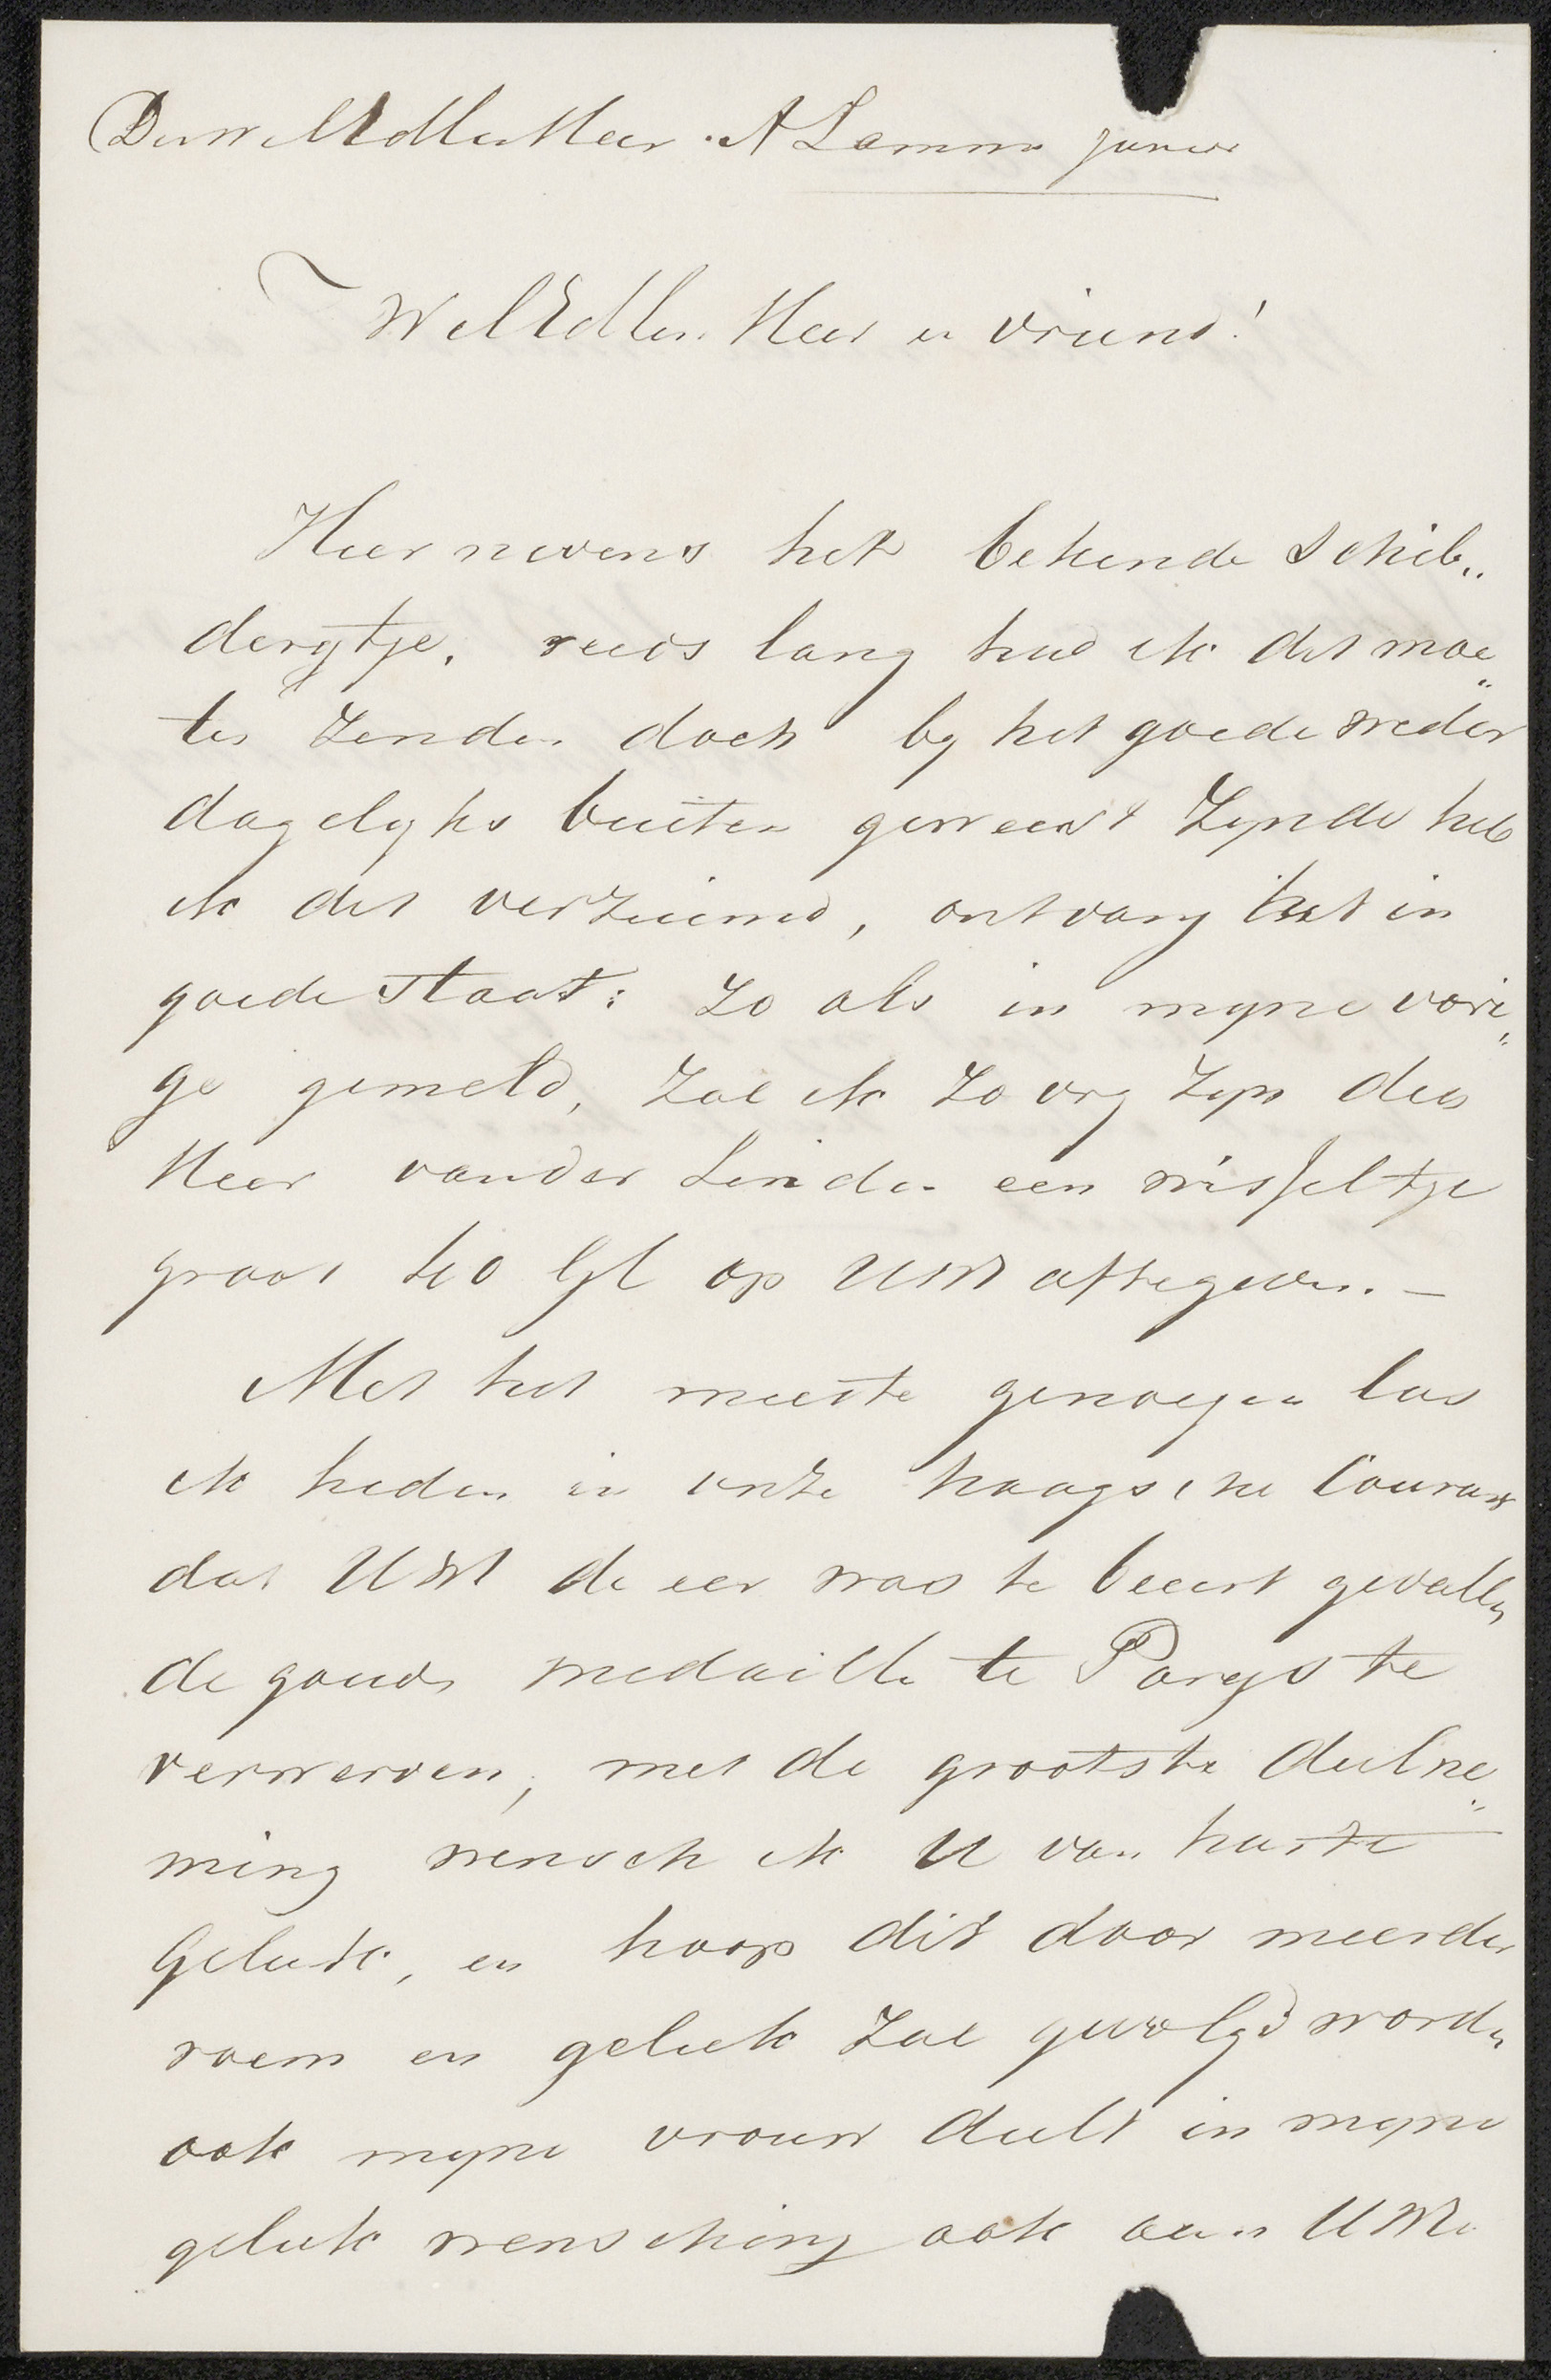 Den WelEdlen Heer A Lamme junior
WelEdlen Heer en vriend!
Heer nevens het bekende Schil„
derytje, reeds lang had ik dit moe„
ten zenden doch by het goede weder
dagelyks buiten geweest zynde heb
ik dit verzuimd, ontvang het in
goede staat: zo als in myne vori„
ge gemeld, zal ik zo vry zyn den
Heer vander Linden een wisseltje
groot op UW aftegeven. —
Met het meeste genoegen las
ik heden in onze haagsche Courant
dat UW de eer was te beurt gevallen
de goude medaille te Parys te
verwerven, met de grootste deelne„
ming wensch ik U van harte
geluk, en hoop dit door meerder
roem en geluk zal gevolgd worden
ook myne vrouw deelt in myne
geluk wensching ook aan UW